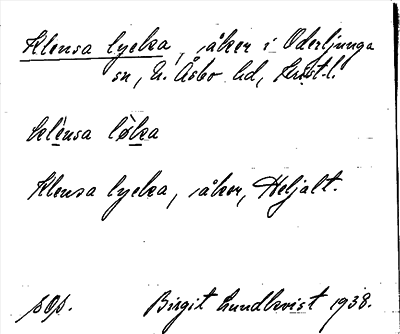 Klensa lycka, åker i Oderljunga
sn, N. Åsbo hd, Krist. l.
klènsa løka
Klensa lycka, åker, Heljalt.
sOp. Birgit Lundkvist 1938.